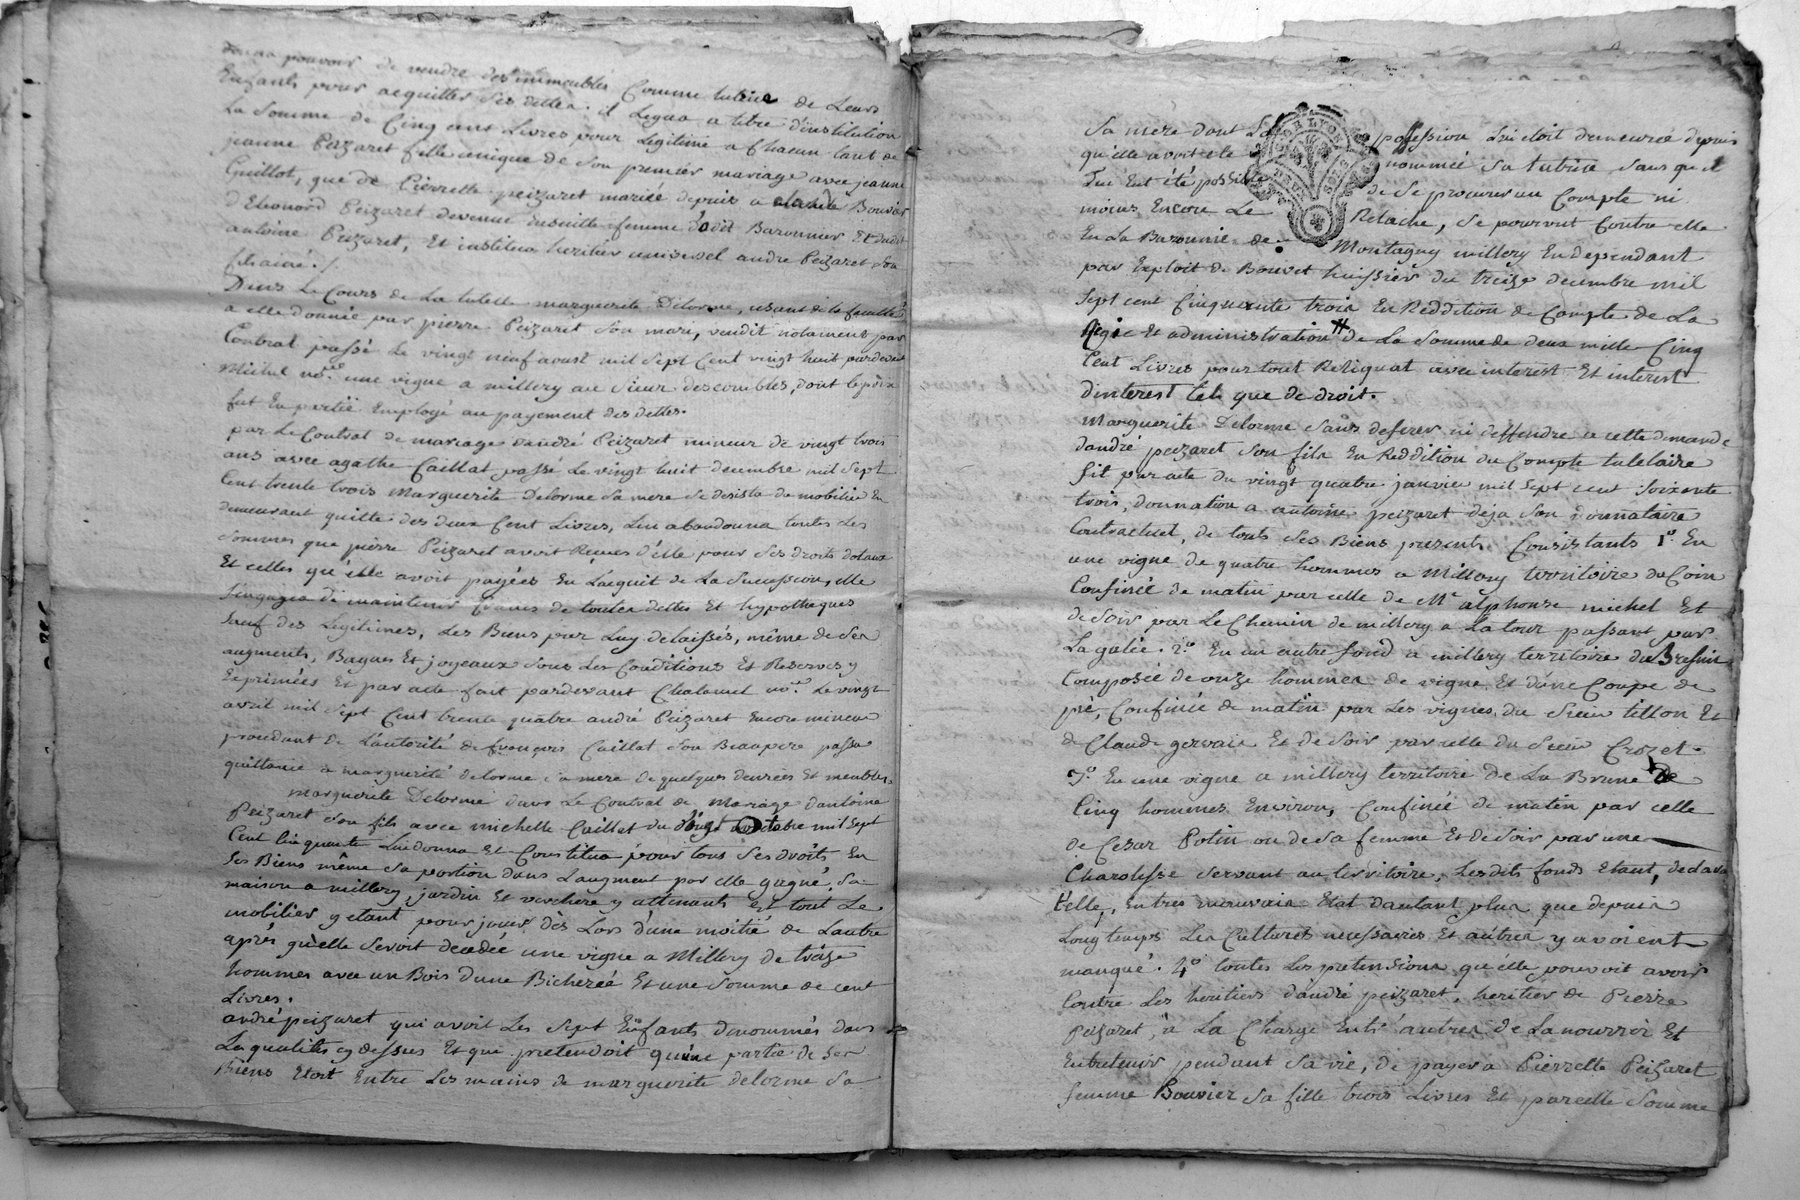 donna pouvoir de vendre des immeubles Comme tutrice de Leurs
Enfants pour acquitter ses dettes. il Legua a titre d'institution
La somme de Cinq cent Livres pour Legitime a Chacun tant de
jeanne Peizaret fille unique de son premier mariage avec jeanne
Guillot, que de Pierrette peizaret mariée depuis a Bouvier
d'Eleonord Peizaret devenue Ensuitte femme dudit Baronnier Et dudit
antoine Peizaret, Et institua heritier universel andre Peizaret son
fils ainé ./.
Dans Le Cours de La tutelle marguerite Delorme, usant de la faculté
a elle donnée par pierre Peizaret son mari, vendit notament par
Contrat passé Le vingt neuf aoust mil sept Cent vingt huit pardevant
Michel no.re une vigne a millery au sieur descombles, dont le prix
fut En partië Employé au payement des dettes.
par Le Contrat de mariage dandré Peizaret mineur de vingt trois
ans avec agathe Caillat passé Le vingt huit decembre mil sept
Cent trente trois Marguerite Delorme sa mere se desista du mobilier En
demeurant quitte des deux Cent Livres, Luy abandonna toutes Les
sommes que pierre Peizaret avoit Reçues d'elle pour ses droits dotaux
Et celles qu'elle avoit payées En L'acquit de La succession, elle
s'engagea de maintenir francs de toutes dettes Et hypotheques
sauf des Legitimes, Les Biens par Luy delaissés, même de ses
augments, Bagues Et joyeaux sous Les Conditions Et Reserves y
Exprimées Et par acte fait pardevant Chalamel no.re Le vingt
avril mil sept Cent trente quatre andré Peizaret Encore mineur
procedant de L'autorité de françois Caillat son Beaupere passa
quittance a marguerite delorme sa mere de quelques denrées Et meubles.
marguerite Delorme dans Le Contrat de Mariage dantoine
Peizaret son fils avec michelle Caillat du vingt octobre mil sept
Cent Cinquante Lui donna Et Constitua pour tous ses droits En
ses Biens même sa portion dans L'augment par elle gagné sa
maison a millery, jardin Et verchere y attenants Et tout Le
mobilier y etant pour jouir dès Lors d'une moitié de Lautre
après qu'elle seroit decedée une vigne a Millery de treize
hommes avec un Bois dune Bicherée Et une somme de cent
Livres.
andré peizaret qui avoit Les sept Enfants denommés dans
Les qualités cy dessus Et qui pretendoit qu'une partie de ses
Biens Etoit Entre Les mains de marguerite delorme sa
sa mere dont La possession Lui etoit demeurée depuis
qu'elle avoit ete nommée sa tutrice sans qu il
Lui Eut été possible de se procurer un Compte ni
moins Encore Le Relache, se pourvut Contre elle
En La Baronnie de Montagny millery En dependant
par Exploit de Bouvet huissier du treize decembre mil
sept cent Cinquante trois En Reddition de Compte de La
Regie Et administration de La somme de deux mille Cinq
Cent Livres pour tout Reliquat avec interest Et interest
d'interest tels que de droit.
Marguerite Delorme sans deferer ni deffendre a cette demande
dandré peizaret son fils En Reddition du Compte tutelaire
fit par acte du vingt quatre janvier mil sept cent soixante
trois, donnation a antoine peizaret deja son donnataire
Contractuel, de touts ses Biens presents Consistants 1.° En
une vigne de quatre hommes a Millery territoire du Coin
Confinée de matin par celle de Mr alphonse michel Et
de soir par Le Chemin de millery a La tour passant par
La galée. 2.° En un autre fond a millery territoire du
Composée de onze hommes de vigne Et d'une Coupe de
pré, Confinée de matin par Les vignes du sieur tillon Et
de Claude gervais Et de soir par celle du sieur Crozet.
3.° En une vigne a millery territoire de La Brune de
Cinq hommes Environ, Confinée de matin par celle
de Cezar Potin ou de sa femme Et de soir par une
Charolisse servant au territoire, Lesdits fonds Etant, declara
t'elle, En tres mauvais Etat dautant plus que depuis
Long temps Les Cultures necessaires Et autres y avoient
manqué. 4.° toutes Les pretensions qu'elle pouvoit avoir
Contre Les heritiers dandré peizaret, heritier de Pierre
Peizaret, a La Charge Entr'autres de La nourrir Et
Entretenir pendant sa vie, de payer a Pierrette Peizaret
femme Bouvier sa fille trois Livres Et pareille somme